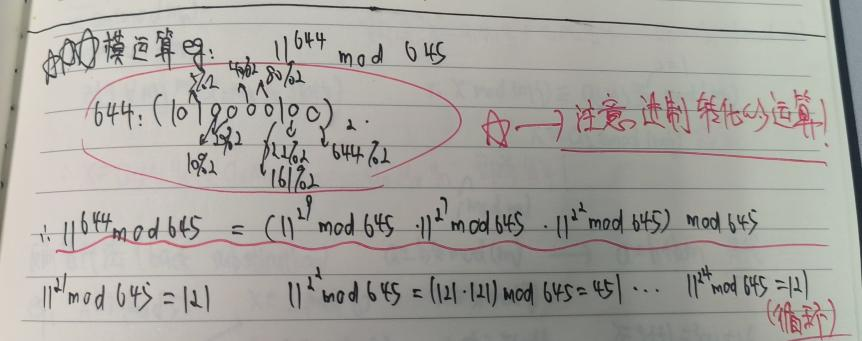 ☆☆☆模运算eg: 11^644 mod 645
5%2 40%2 80%2
644:(1010000100)₂.
☆→注意进制转化的运算!
10%2 20%2 322%2 644%2
161%2
∴ 11^644 mod 645 = (11^2^9 mod 645 · 11^2^7 mod 645 · 11^2^2 mod 645) mod 645
11^2^1 mod 645 = 121 11^2^2 mod 645 = (121·121) mod 645 = 451 ··· 11^2^4 mod 645 = 121
(循环)